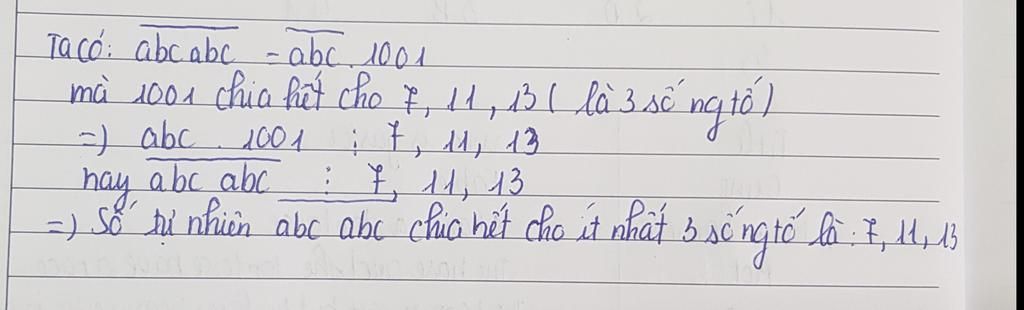 Ta có: abc abc = abc . 1001
mà 1001 chia hết cho 7, 11, 13 ( là 3 số ngtố )
=) abc . 1001 ⋮ 7, 11, 13
hay abc abc ⋮ 7, 11, 13
=) Số tự nhiên abc abc chia hết cho ít nhất 3 số ngtố là : 7, 11, 13